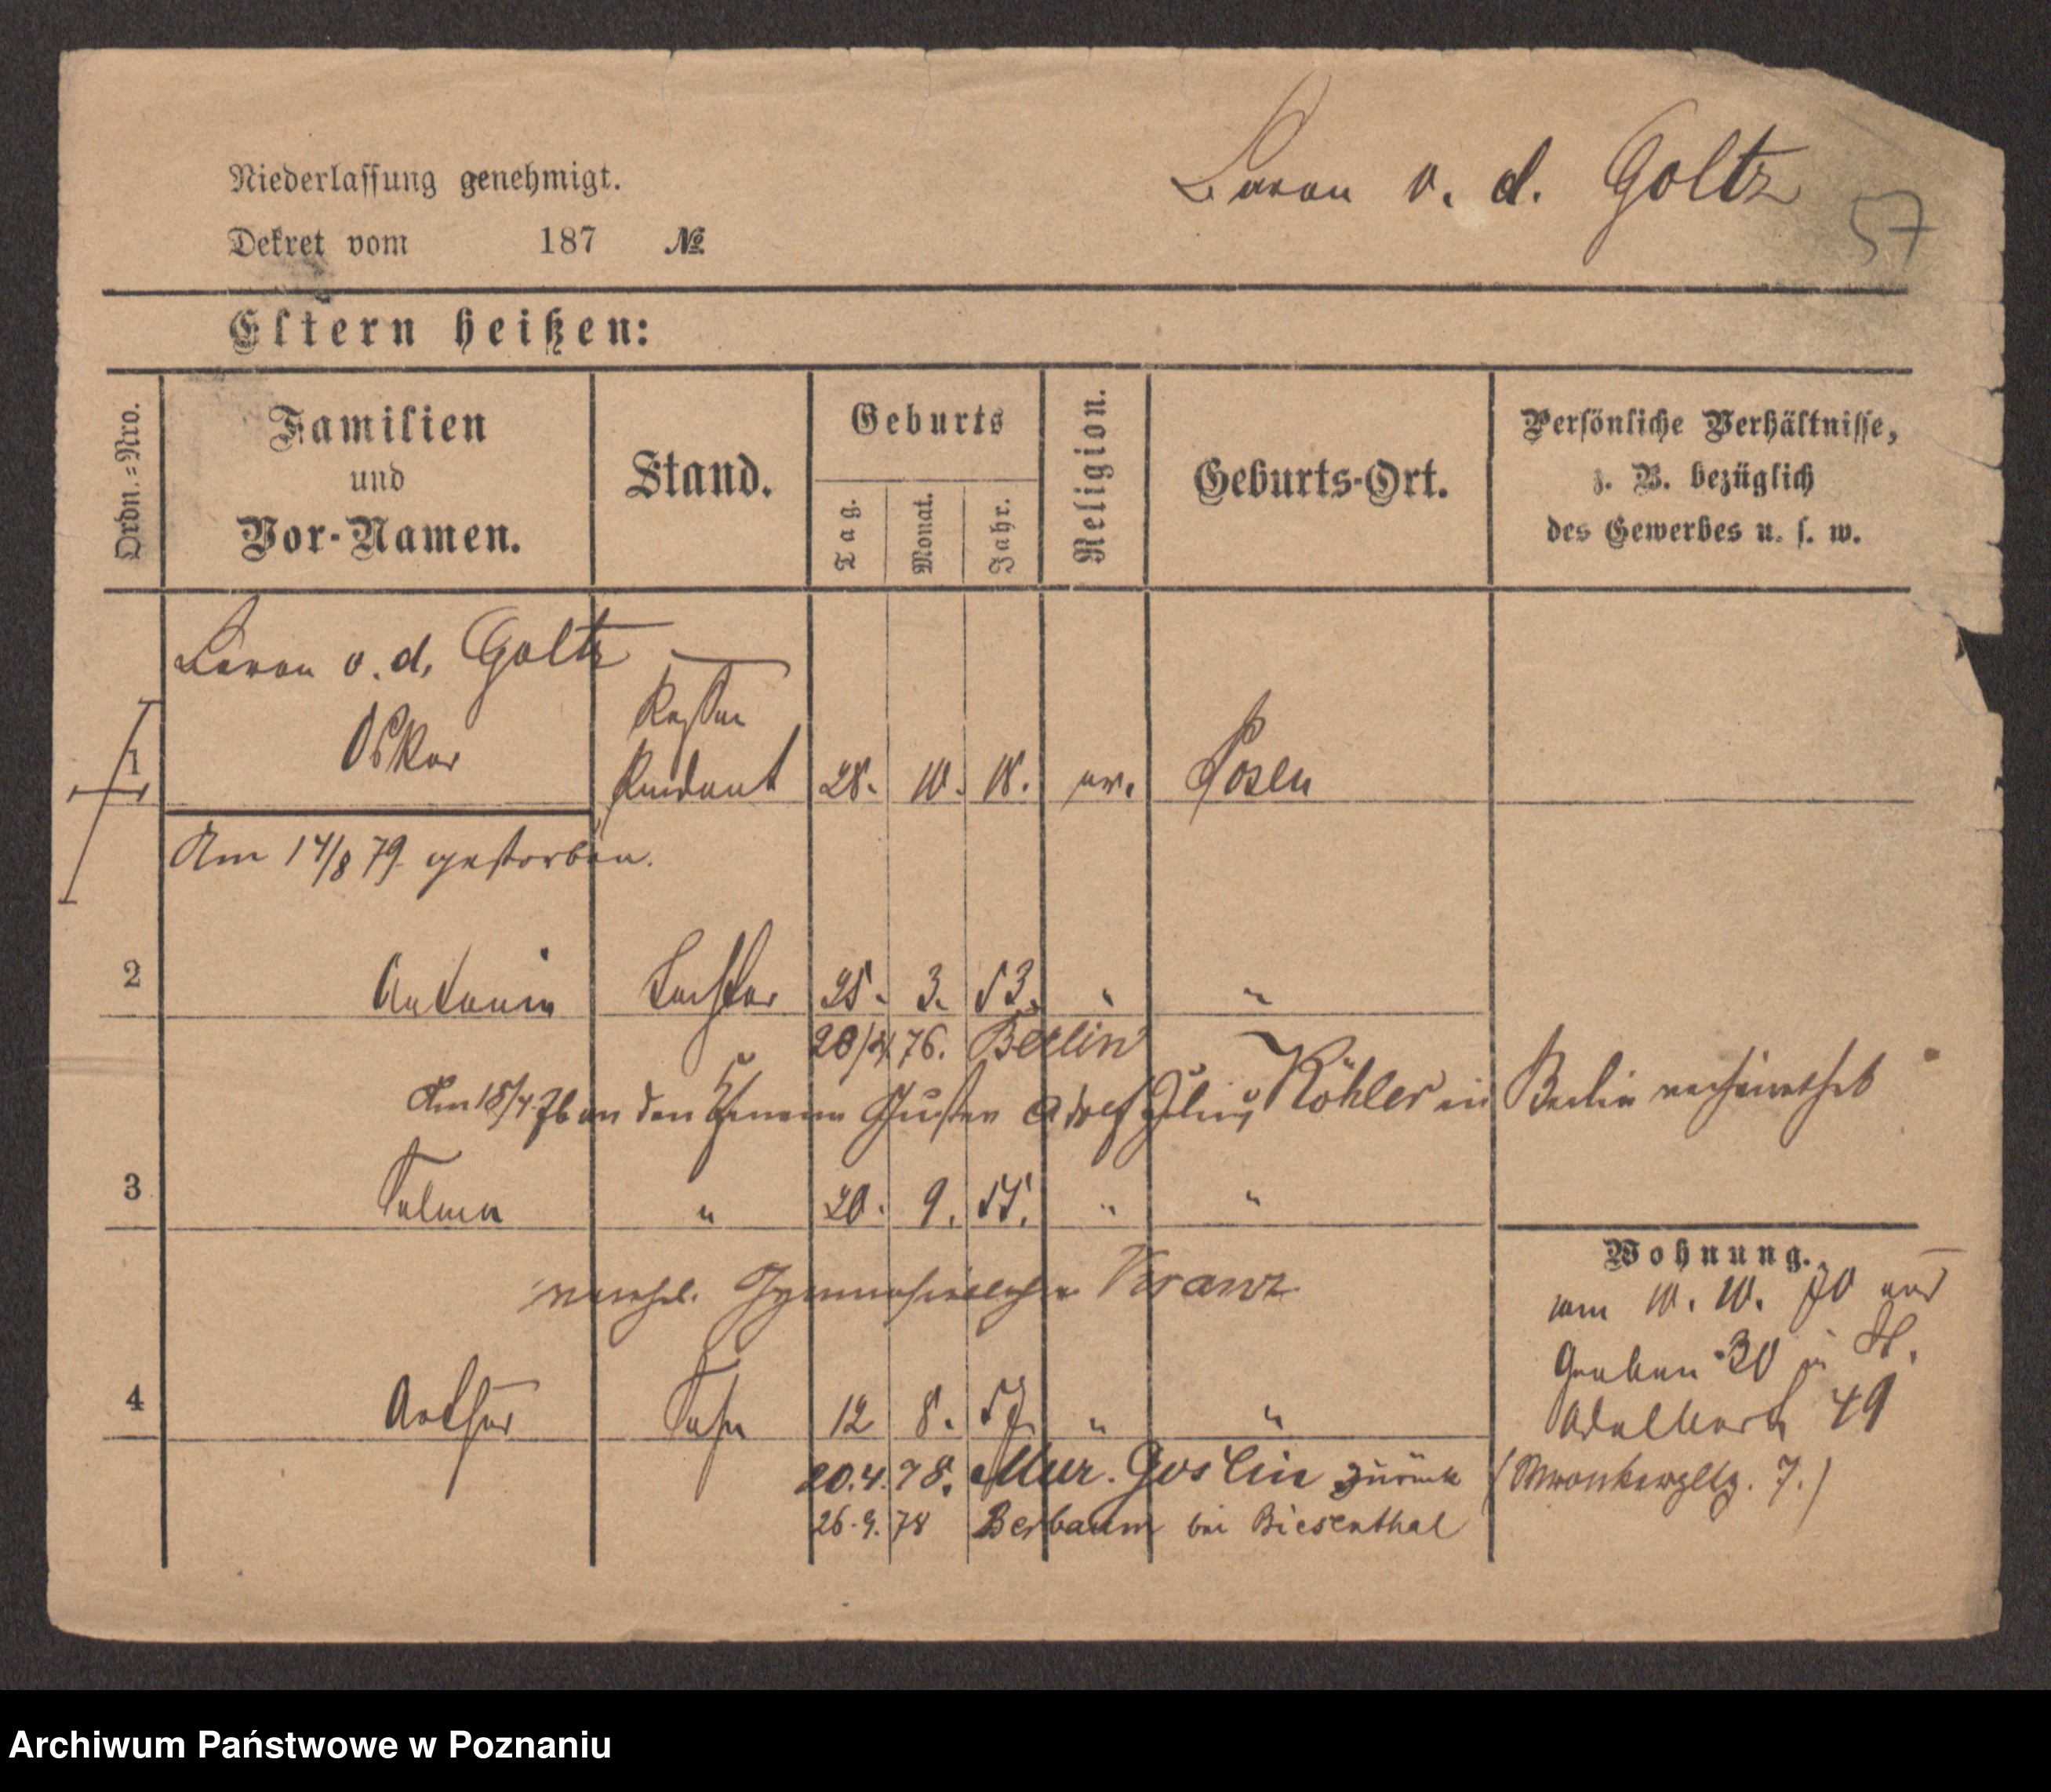 Niederlassung genehmigt.
Baron v. d. Goltz
57
Dekret vom 187 №
Eltern heißen:
Ordn.=Nro.
Familien
und
Vor-Namen.
Stand.
Geburts
Tag.
Monat.
Jahr.
Religion.
Geburts-Ort.
Persönliche Verhältnisse,
z. B. bezüglich
des Gewerbes u. s. w.
Baron v. d. Goltz
1 Oskar Rendant 28. 10. 18. ev. Posen
Am 14/8 79 gestorben.
2 Antonie Tochter 25. 3. 53. " "
20/4 76. Berlin
Am 18/4 76 an den Gustav Adolf Julius Köhler in Berlin verheirathet
3 Selma " 20. 9. 55. " "
verehel. Gymnasiallehrer Kranz
Wohnung.
vom 10. 10. 70 ab
Graben 30 St.
4 Arthur Sohn 12 8. 57 " "
Adalbert 49
20.4.78. Mur. Goslin zurück
(Wronkerpltz. 7.)
26.9.78 Berbaum bei Biesenthal
Archiwum Państwowe w Poznaniu